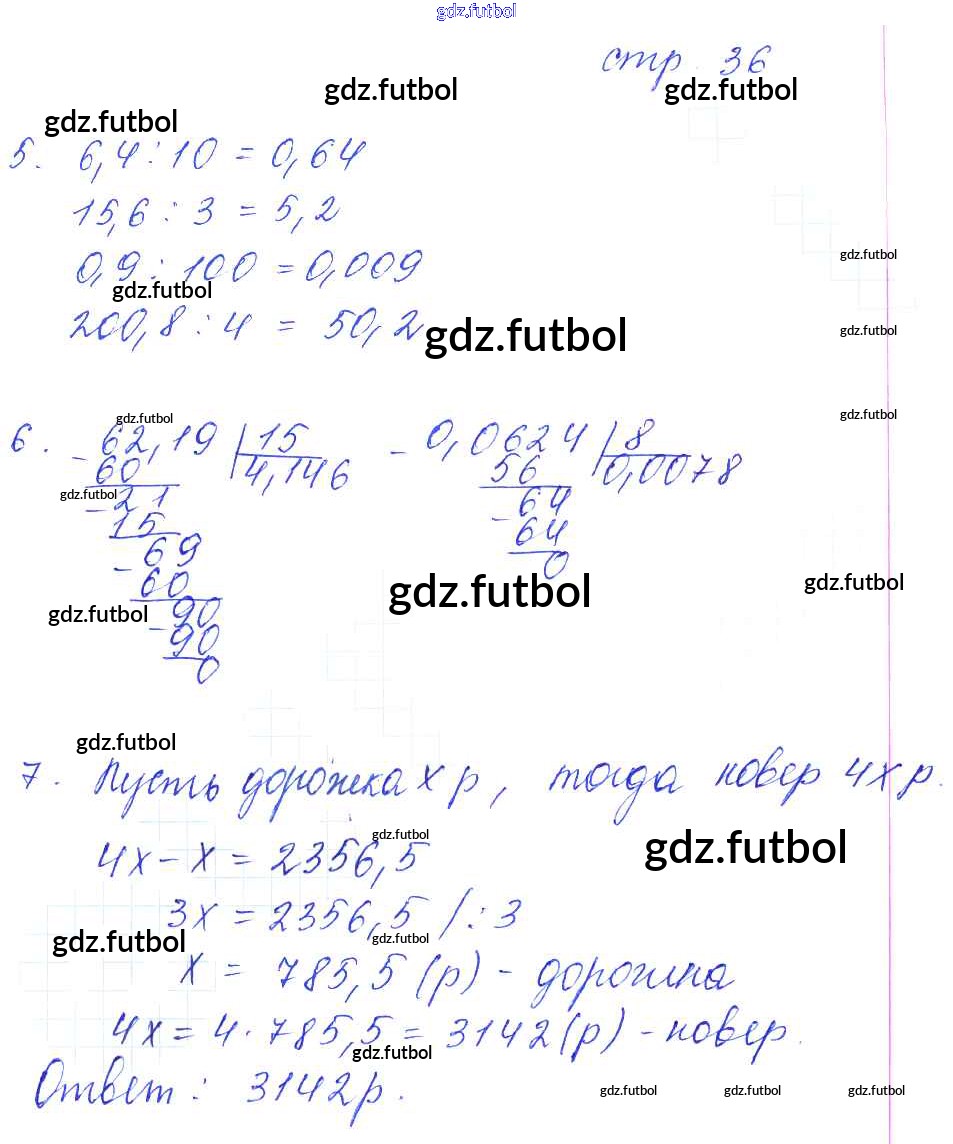 gdz.futbol
стр. 36
gdz.futbol gdz.futbol
gdz.futbol
5. 6,4 : 10 = 0,64
15,6 : 3 = 5,2
gdz.futbol
0,9 : 100 = 0,009
gdz.futbol
200,8 : 4 = 50,2
gdz.futbol gdz.futbol
gdz.futbol gdz.futbol
6. - 62,19 | 15 - 0,0624 | 8
60 4,146 56 0,0078
gdz.futbol - 21 64
15 - 64
- 69 0
60 gdz.futbol gdz.futbol
gdz.futbol - 90
90
0
gdz.futbol
7. Пусть дорожка х р, тогда ковер 4х р.
gdz.futbol gdz.futbol
4х - х = 2356,5
3х = 2356,5 / : 3
gdz.futbol gdz.futbol
х = 785,5 (р) - дорожка
4х = 4 · 785,5 = 3142 (р) - ковер.
gdz.futbol
Ответ : 3142 р.
gdz.futbol gdz.futbol gdz.futbol